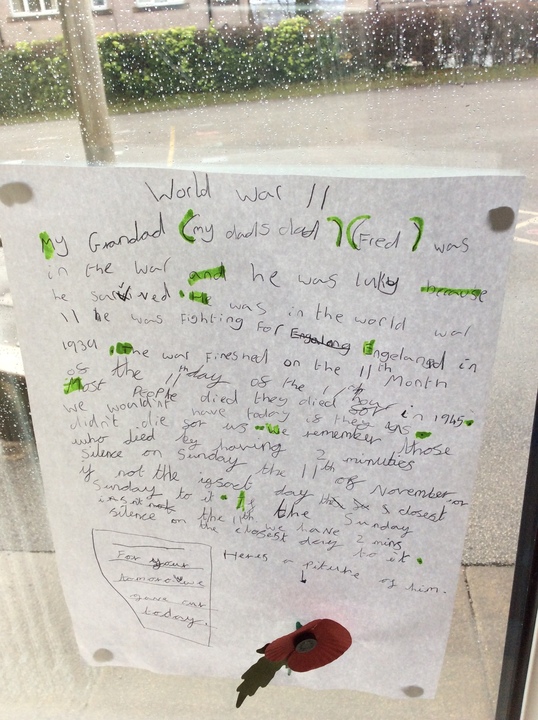 World war 11
My Grandad (my dads dad) (Fred) was
in the war and he was luky because
he survived. He was in the world war
11 he was fighting for Engelong Engelangd in
1939. The war fineshed on the 11th Month
of the 11th day of the 11th hour in 1945.
Most People died they died for us
we wouldn't have today is they
didn't die for us. We remember those
who died by having 2 minuties
silence on Sunday the 11th of November or
if not the day the closest
Sunday to it. If the Sunday
isn't the 11th we have 2 mins
silence on the closest day to it.
Heres a piture of him.
For your
tomorowe we
gave our
today.